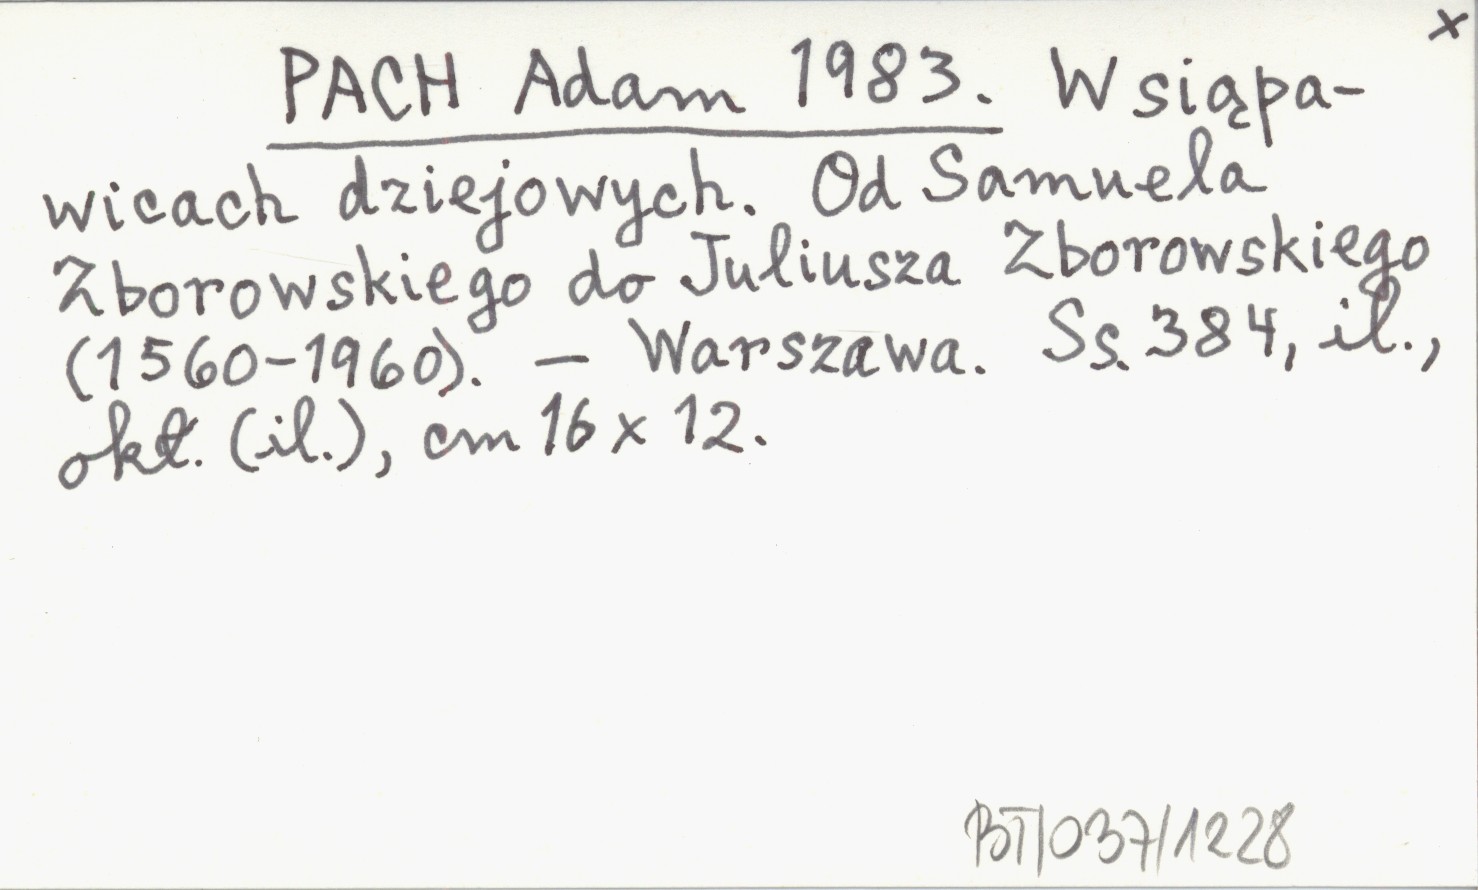 x
PACH Adam 1983. W siąpa-
wicach dziejowych. Od Samuela
Zborowskiego do Juliusza Zborowskiego
(1560-1960). – Warszawa. Ss. 384, il.,
okł. (il.), cm 16 x 12.
BT/037/1228